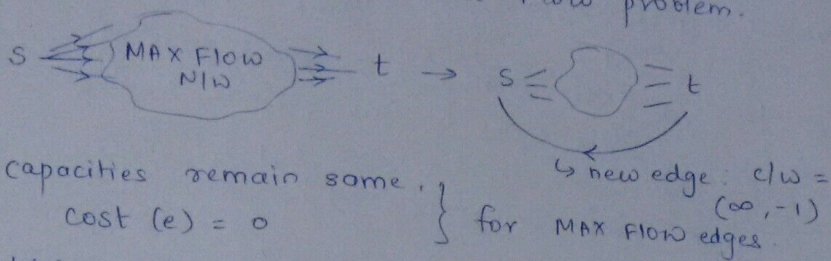 Flow problem.
S MAX FLOW N/W t → S t
↳ new edge: c/w = (∞, -1)
capacities remain same.
cost (e) = 0 } for MAX FLOW edges.